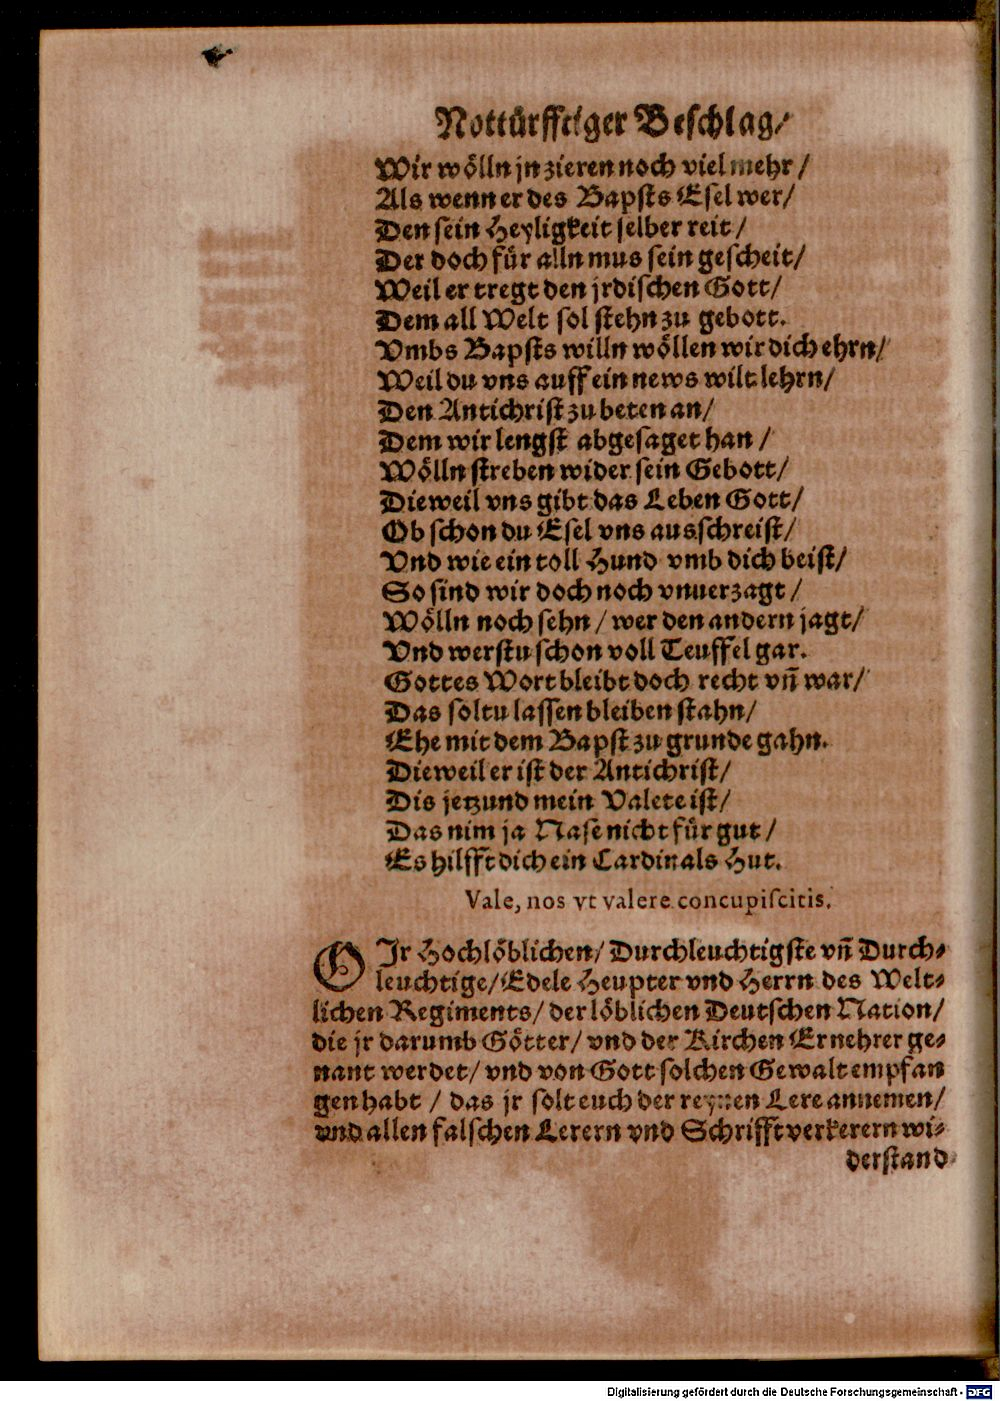 Nottürfftiger Beschlag/
Wir wölln jn zieren noch viel mehr /
Als wenn er des Bapsts Esel wer/
Den sein Heyligkeit selber reit /
Der doch für alln mus sein gescheit/
Weil er tregt den jrdischen Gott/
Dem all Welt sol stehn zu gebott.
Vmbs Bapsts willn wöllen wir dich ehrn/
Weil du vns auff ein news wilt lehrn/
Den Antichrist zu beten an/
Dem wir lengst abgesaget han /
Wölln streben wider sein Gebott/
Dieweil vns gibt das Leben Gott/
Ob schon du Esel vns ausschreist/
Vnd wie ein toll Hund vmb dich beist/
So sind wir doch noch vnuerzagt /
Wölln noch sehn / wer den andern jagt/
Vnd werstu schon voll Teuffel gar.
Gottes Wort bleibt doch recht vñ war/
Das soltu lassen bleiben stahn/
Ehe mit dem Bapst zu grunde gahn.
Dieweil er ist der Antichrist/
Dis jetzund mein Valete ist/
Das nim ja Nase nicht für gut /
Es hilfft dich ein Cardinals Hut.
Vale, nos vt valere concupiscitis.
O Jr Hochlöblichen/ Durchleuchtigste vñ Durch-
leuchtige/ Edele Heupter vnd Herrn des Welt-
lichen Regiments/ der löblichen Deutschen Nation/
die jr darumb Götter/ vnd der Kirchen Ernehrer ge-
nant werdet/ vnd von Gott solchen Gewalt empfan
gen habt / das jr solt euch der reynen Lere annemen/
vnd allen falschen Lerern vnd Schrifftverkerern wi-
derstand
Digitalisierung gefördert durch die Deutsche Forschungsgemeinschaft - DFG